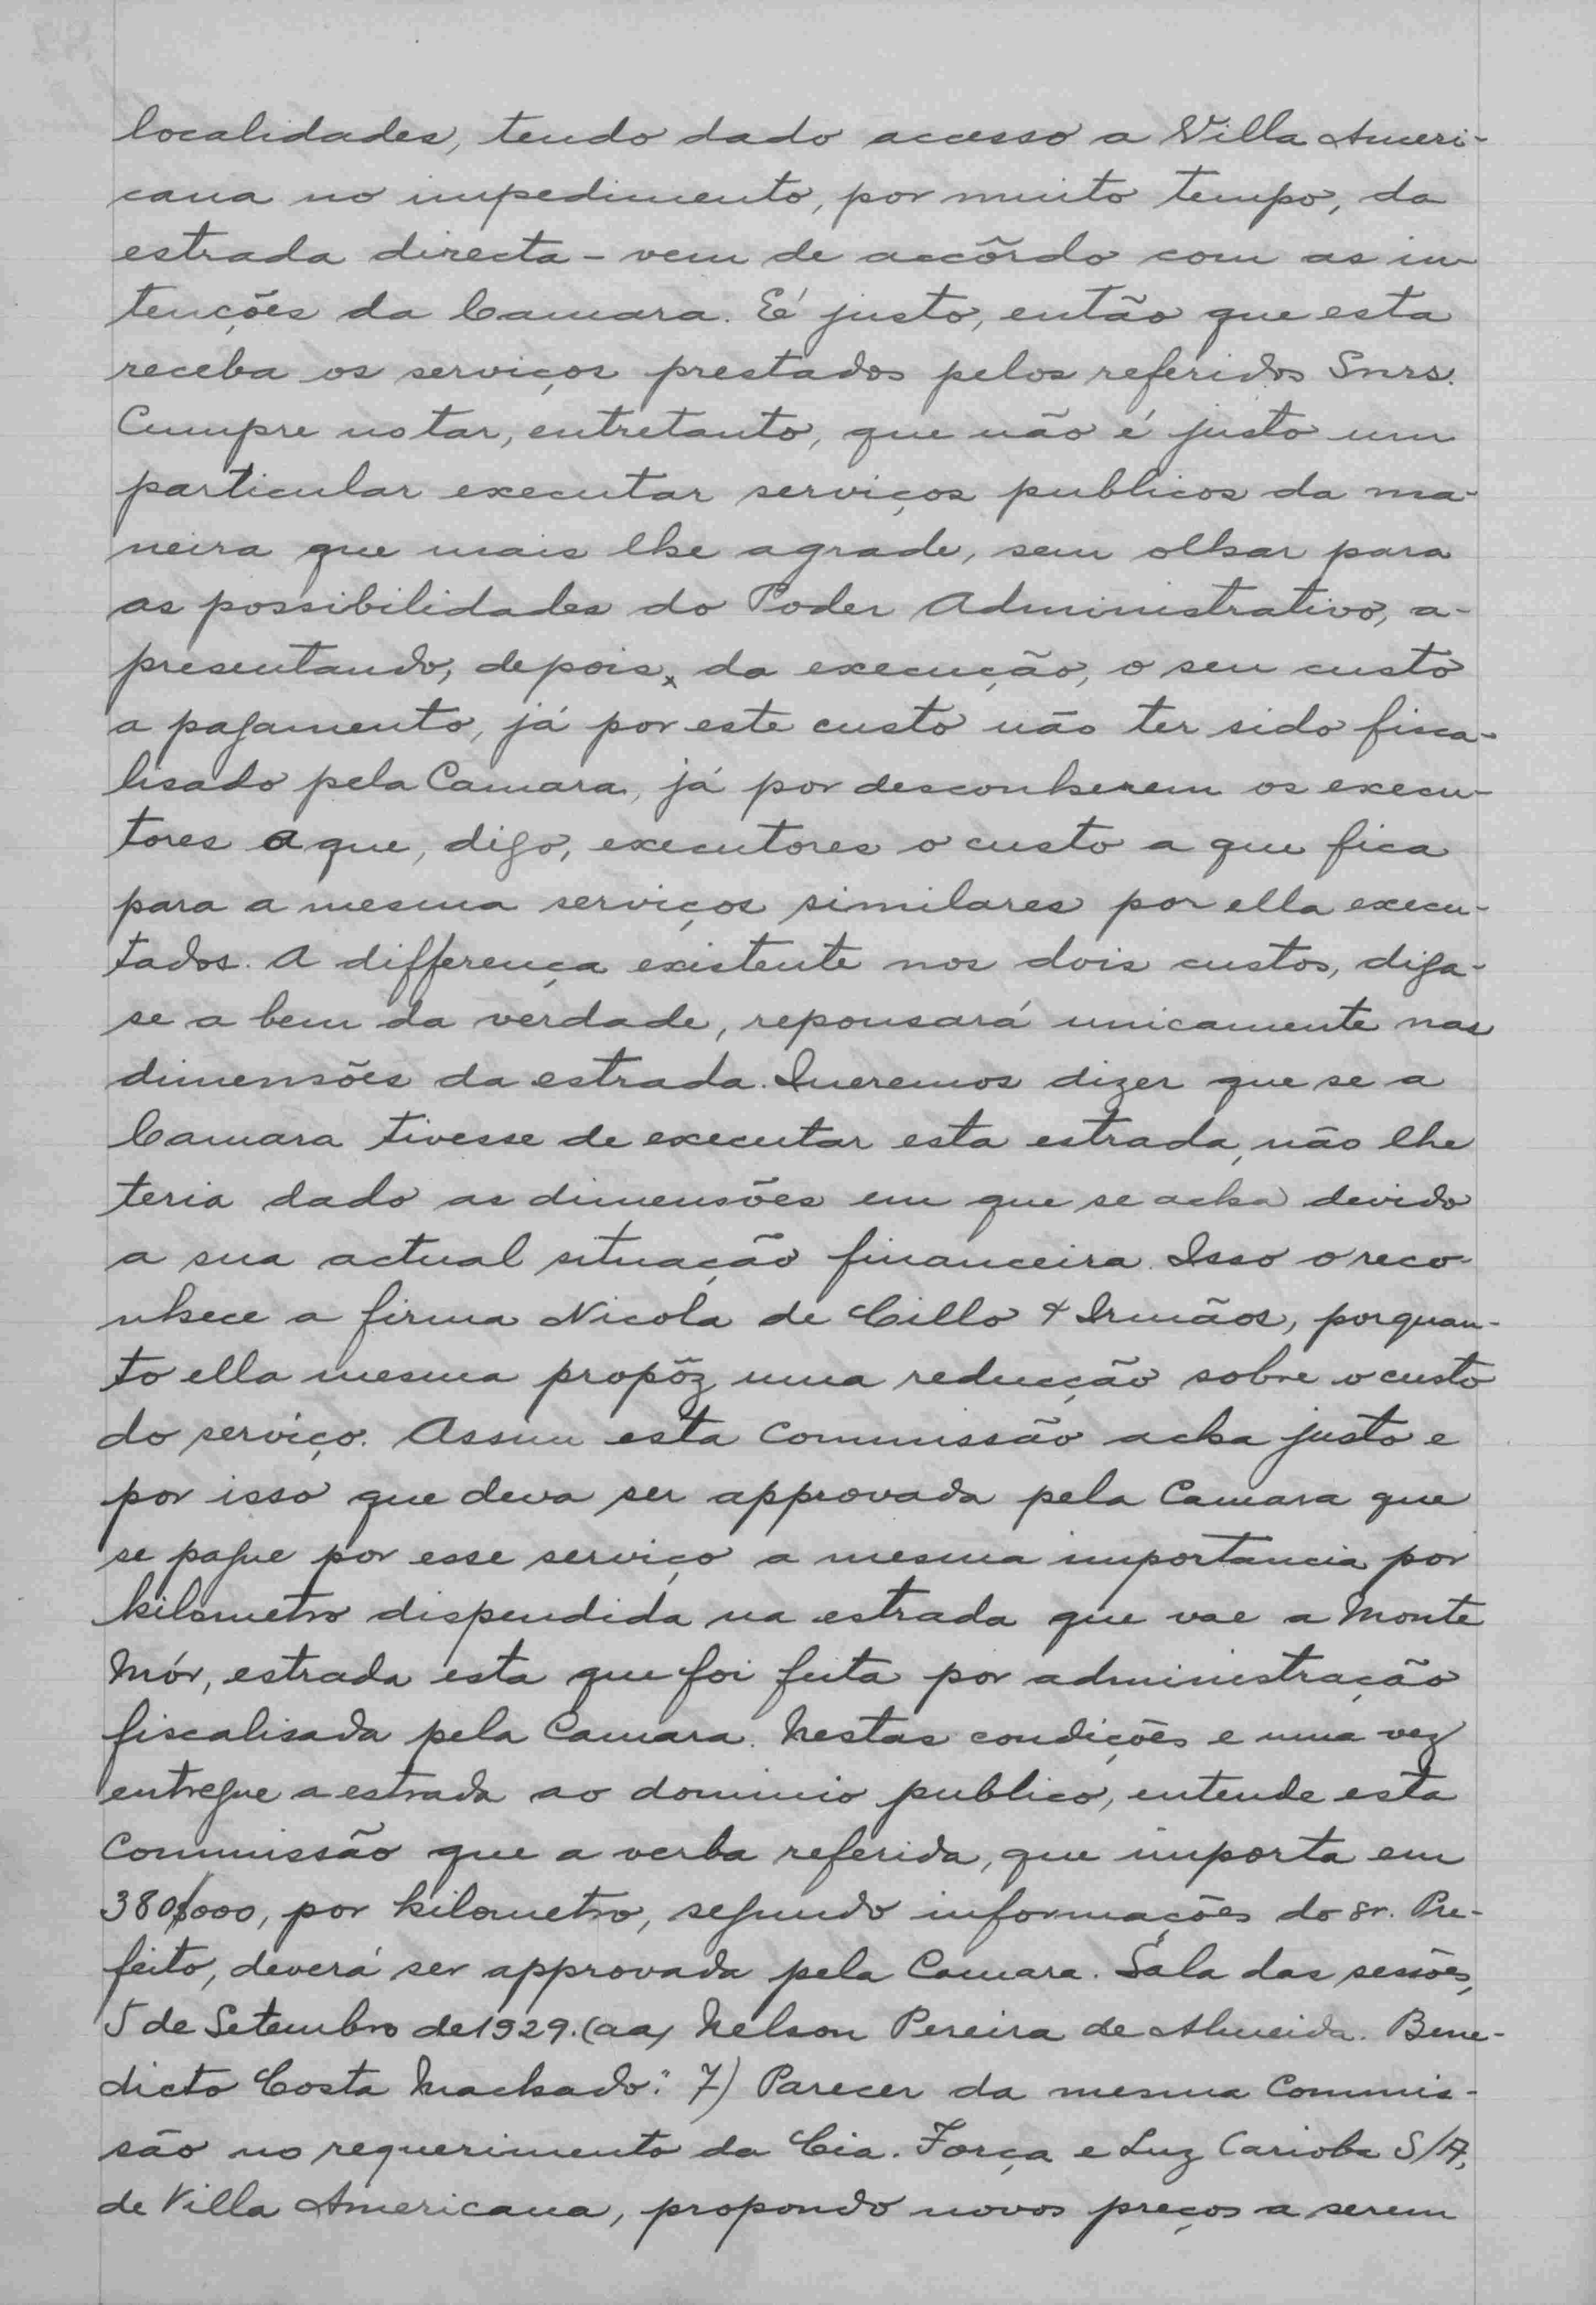 localidades, tendo dado accesso a Villa Ameri-
cana no impedimento, por muito tempo, da
estrada directa - vem de accôrdo com as in-
tenções da Camara. É justo, então que esta
receba os serviços prestados pelos referidos Snrs.
Cumpre notar, entretanto, que não é justo um
particular executar serviços publicos da ma-
neira que mais lhe agrade, sem olhar para
as possibilidades do Poder Administrativo, a-
presentando, depois, da execução, o seu custo
a pagamento, já por este custo não ter sido fisca-
lisado pela Camara, já por desconherem os execu-
tores a que, digo, executores o custo a que fica
para a mesma serviços similares por ella execu-
tados. A differença existente nos dois custos, diga-
se a bem da verdade, repousará unicamente nas
dimensões da estrada. Queremos dizer que se a
Camara tivesse de executar esta estrada, não lhe
teria dado as dimensões em que se acha devido
a sua actual situação financeira. Isso o reco-
nhece a firma Nicola de Cillo & Irmãos, porquan-
to ella mesma propôz uma reducção sobre o custo
do serviço. Assim esta Commissão acha justo e
por isso que deva ser approvada pela Camara que
se pague por esse serviço a mesma importancia por
kilometro dispendida na estrada que vae a Monte
Mór, estrada esta que foi feita por administração
fiscalisada pela Camara. Nestas condições e uma vez
entregue a estrada ao dominio publico, entende esta
Commissão que a verba referida, que importa em
380$000, por kilometro, segundo informações do sr. Pre-
feito, deverá ser approvada pela Camara. Sala das sessões,
5 de Setembro de 1929. (aa) Nelson Pereira de Almeida. Bene-
dicto Costa Machado." 7) Parecer da mesma Commis-
são no requerimento da Cia. Força e Luz Carioba S/A,
de Villa Americana, propondo novos preços a serem